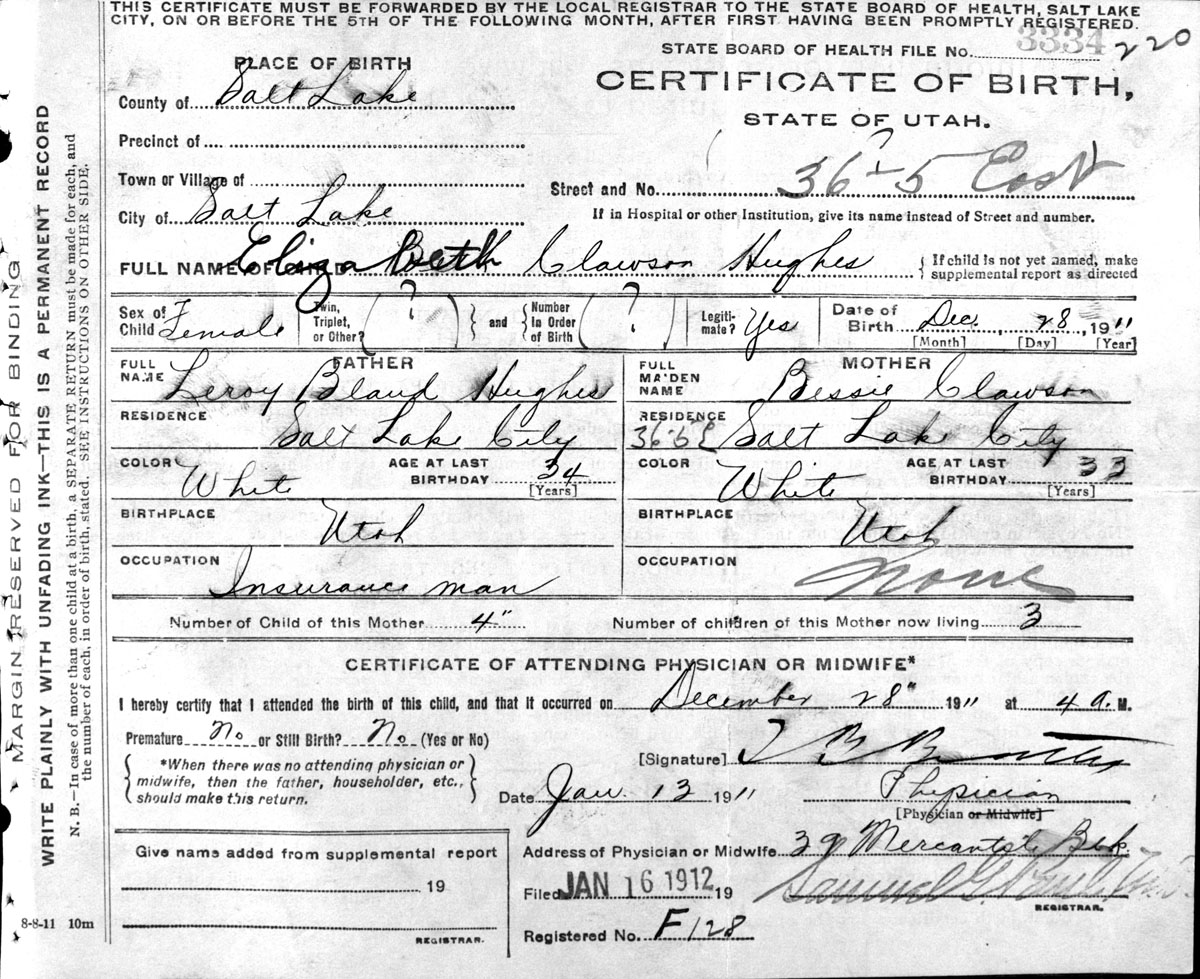 THIS CERTIFICATE MUST BE FORWARDED BY THE LOCAL REGISTRAR TO THE STATE BOARD OF HEALTH, SALT LAKE
CITY, ON OR BEFORE THE 5TH OF THE FOLLOWING MONTH, AFTER FIRST HAVING BEEN PROMPTLY REGISTERED.
STATE BOARD OF HEALTH FILE No. 3334 220
PLACE OF BIRTH
CERTIFICATE OF BIRTH,
STATE OF UTAH.
County of Salt Lake
Precinct of
Town or Village of
Street and No. 36-5 East
?
City of Salt Lake
If in Hospital or other Institution, give its name instead of Street and number.
FULL NAME OF CHILD Elizabeth Clawson Hughes
{ If child is not yet named, make
supplemental report as directed
Sex of Child Female
Twin, Triplet, or Other? ( ? ) and Number In Order of Birth ( ? )
Legitimate? Yes
Date of Birth Dec. , 28 , 1911
[Month] [Day] [Year]
FATHER
FULL NAME Leroy Bland Hughes
RESIDENCE Salt Lake City
COLOR White AGE AT LAST BIRTHDAY 34
[Years]
BIRTHPLACE Utah
OCCUPATION Insurance man
MOTHER
FULL MAIDEN NAME Bessie Clawson
RESIDENCE 36-5 E Salt Lake City
COLOR White AGE AT LAST BIRTHDAY 33
[Years]
BIRTHPLACE Utah
OCCUPATION None
Number of Child of this Mother 4" Number of children of this Mother now living 3
CERTIFICATE OF ATTENDING PHYSICIAN OR MIDWIFE*
I hereby certify that I attended the birth of this child, and that it occurred on December 28" 1911 at 4 A. M.
Premature No or Still Birth? No (Yes or No)
{ *When there was no attending physician or
midwife, then the father, householder, etc.,
should make this return. }
[Signature]
Date Jan. 13 1911
Physician
[Physician or Midwife]
Give name added from supplemental report
19
REGISTRAR.
Address of Physician or Midwife 39 Mercantile Blk.
Filed JAN 16 1912 19 Samuel G.
REGISTRAR.
Registered No. F128
8-8-11 10m
MARGIN RESERVED FOR BINDING
WRITE PLAINLY WITH UNFADING INK—THIS IS A PERMANENT RECORD
N. B.—In case of more than one child at a birth, a SEPARATE RETURN must be made for each, and
the number of each, in order of birth, stated. SEE INSTRUCTIONS ON OTHER SIDE.